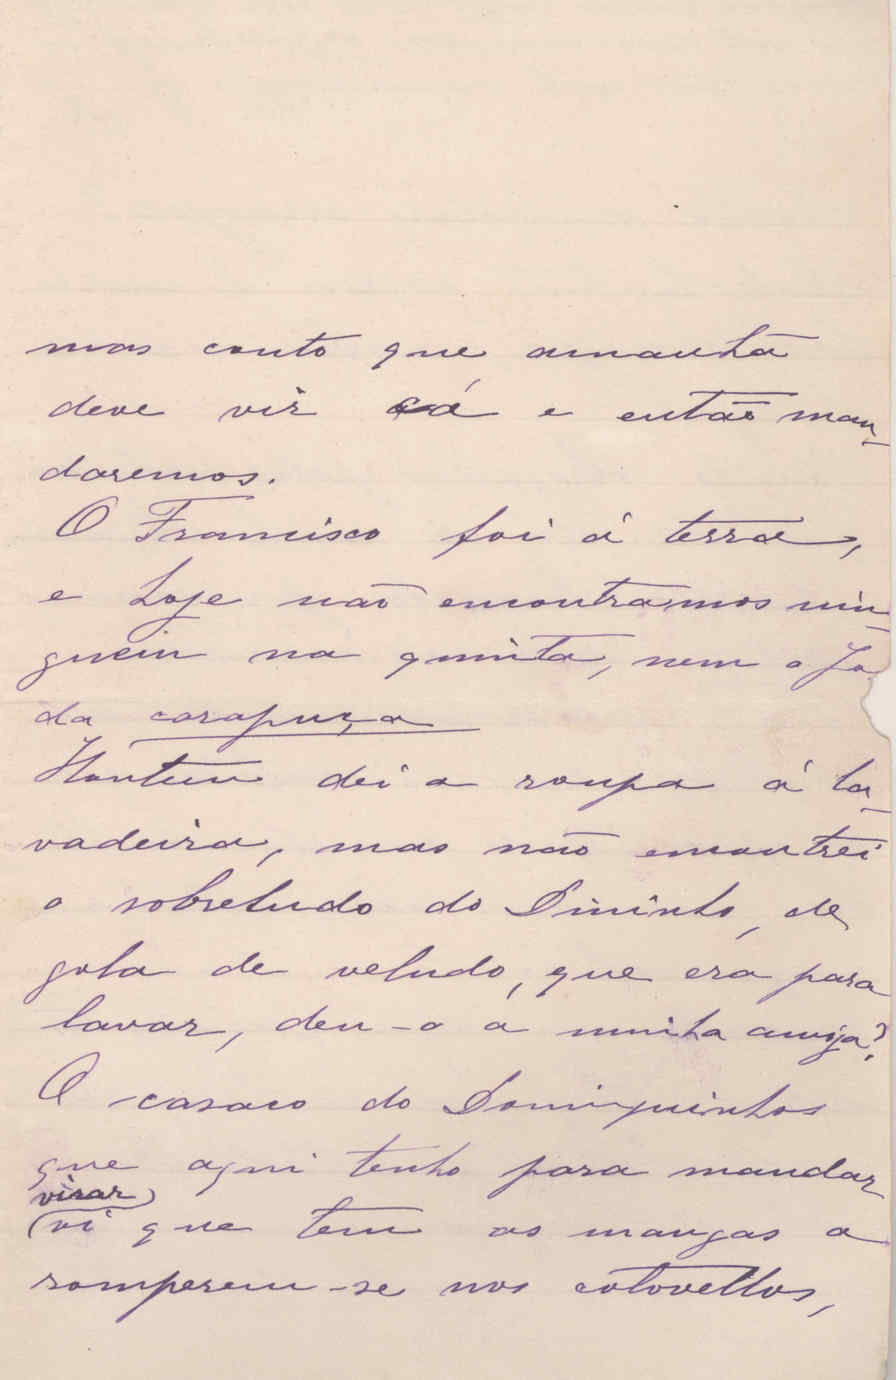 mas conto que amanhã
deve vir cá e então man-
daremos.
O Francisco foi á terra,
e hoje não encontramos nin-
guem na quinta, nem o Zé
da carapuça
Hontem dei a roupa á la-
vadeira, mas não encontrei
o sobretudo do Dininho, de
gola de veludo, que era para
lavar, deu-o a minha amiga?
O casaco do Dominguinhos
que aqui tenho para mandar
virar
vi que tem as mangas a
romperem-se nos cotovellos,